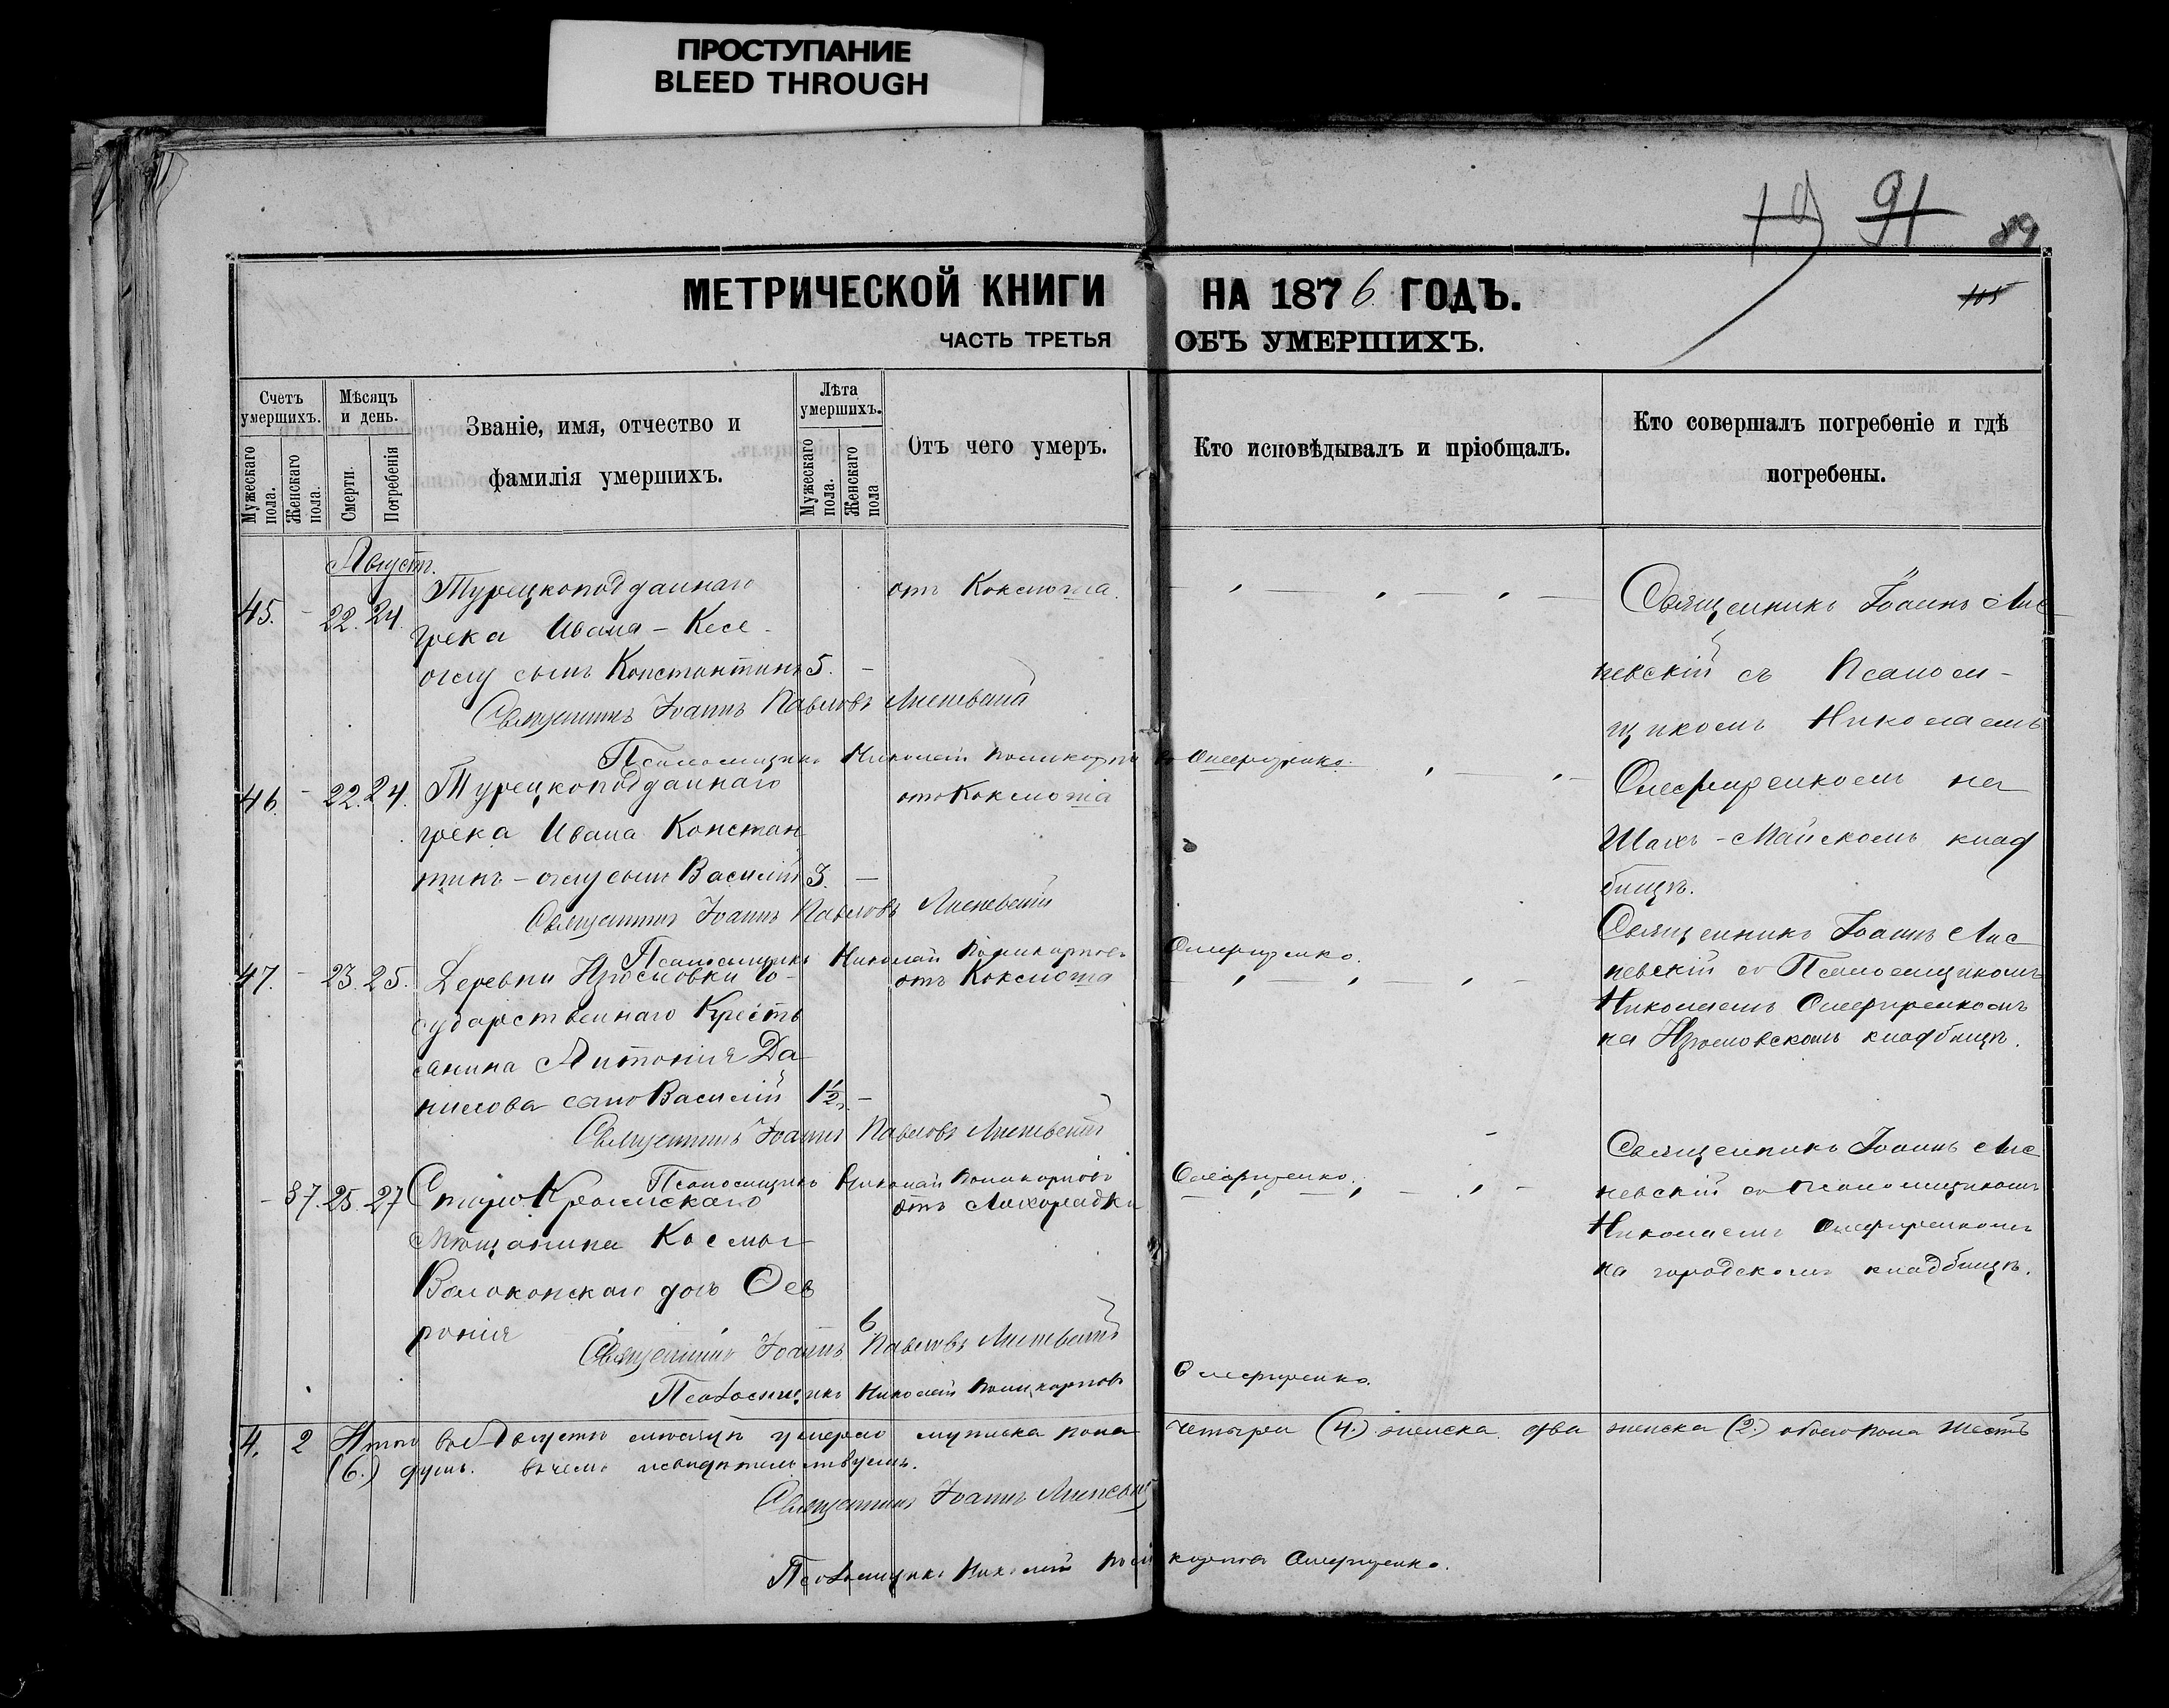 ПРОСТУПАНИЕ
BLEED THROUGH
19 91 89
МЕТРИЧЕСКОЙ КНИГИ НА 1876 ГОДЪ.
105
ЧАСТЬ ТРЕТЬЯ ОБЪ УМЕРШИХЪ.
Счетъ умершихъ.
Мужескаго пола.
Женскаго пола.
Мѣсяцъ и день.
Смерти.
Погребенія
Званіе, имя, отчество и
фамилія умершихъ.
Лѣта умершихъ.
Мужескаго пола.
Женскаго пола
Отъ чего умер.
Кто исповѣдывалъ и пріобщалъ.
Кто совершалъ погребеніе и гдѣ
погребены.
Августъ.
45. - 22. 24. Турецкоподданнаго
грека Ивана - Кесе-
оглу сынъ Константинъ 5. -
отъ Коклюша.
Священникъ Іоаннъ Лис
невскій съ Псалом-
щикомъ Николаемъ
на
кладбищѣ.
Священникъ Іоаннъ Павловъ Лисневскій
Псаломщикъ Николай Поликарповъ
46. - 22. 24. Турецкоподданнаго
грека Ивана Констан
тинъ - оглу сынъ Василій 3. -
отъ Коклюша
Священникъ Іоаннъ Павловъ Лисневскій
Псаломщикъ Николай Поликарповъ
47. - 23. 25. Деревни Изюмовки Го-
сударственнаго Крестъ
янина Антонія Да
нилова сынъ Василій 1½ -
отъ Коклюша
Священникъ Іоаннъ Лис
невскій съ Псаломщикомъ
Николаемъ
на Изюмовскомъ кладбищѣ.
Священникъ Іоаннъ Павловъ Лисневскій
Псаломщикъ Николай Поликарповъ
- 37. 25. 27 Старо-Крымскаго
Мѣщанина Космы
Волоконскаго дочь Фев
ронія 6
отъ Лихорадки
Священникъ Іоаннъ Лис
невскій съ Псаломщикомъ
Николаемъ
на городскомъ кладбищѣ.
Священникъ Іоаннъ Павловъ Лисневскій
Псаломщикъ Николай Поликарповъ
4. 2 Итого въ Августѣ мѣсяцѣ умерло мужеска пола четыре (4.) женска два женска (2.) обоего пола шесть
(6.) душъ. въ чемъ и свидѣтельствуемъ.
Священникъ Іоаннъ Лисневскій
Псаломщикъ Николай Поликарповъ